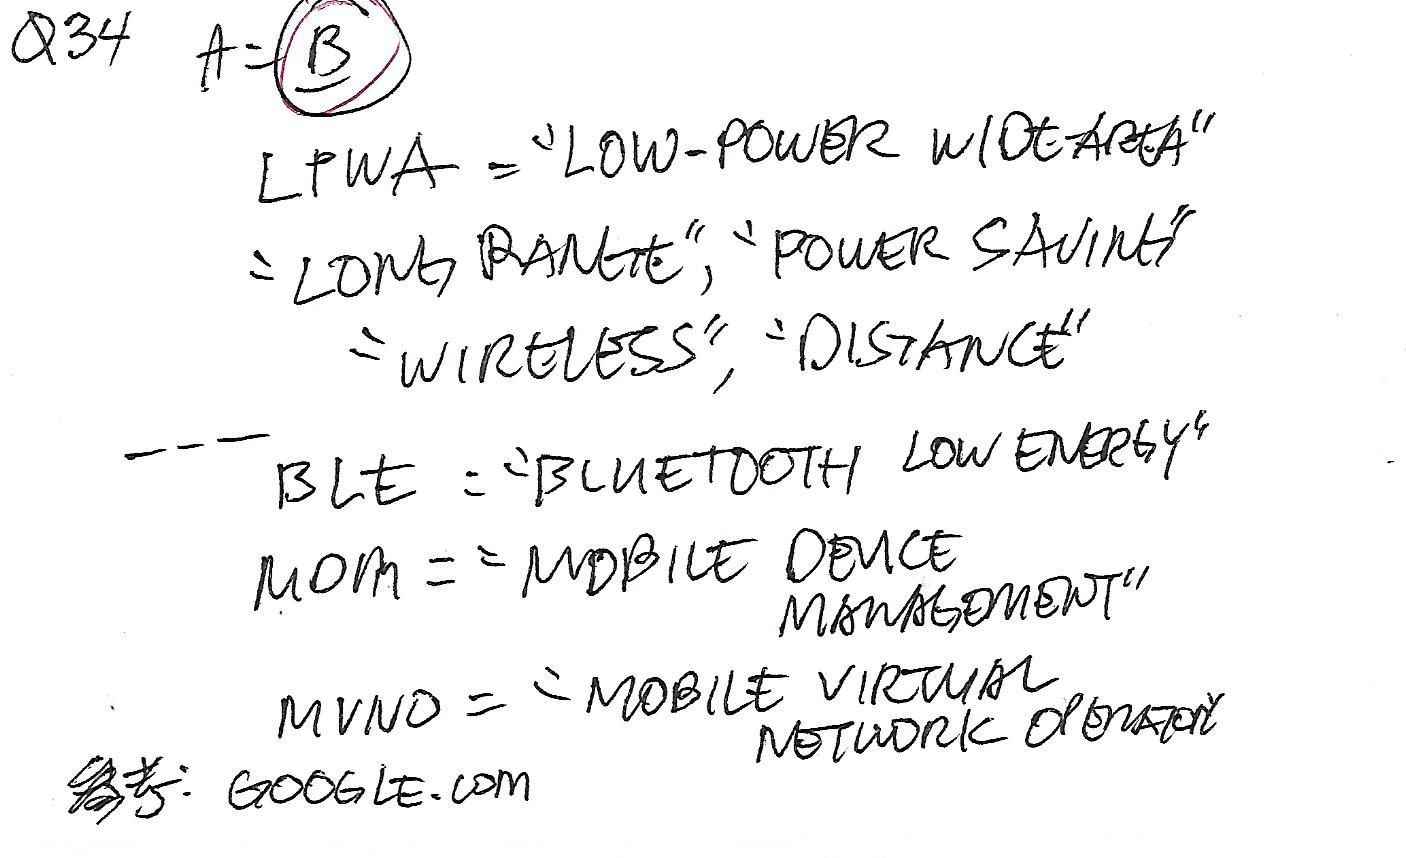 Q34 A = B
LPWA = "LOW-POWER WIDE AREA"
"LONG RANGE", "POWER SAVING"
"WIRELESS", "DISTANCE"
--- BLE = "BLUETOOTH LOW ENERGY"
MDM = "MOBILE DEVICE
MANAGEMENT"
MVNO = "MOBILE VIRTUAL
NETWORK OPERATOR
参考: GOOGLE.COM